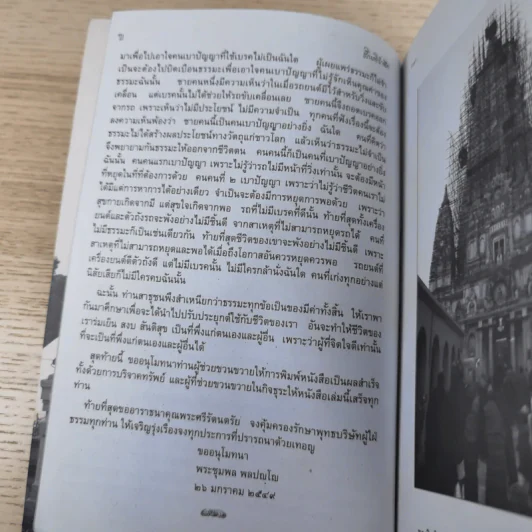 ข
มาเพื่อไปเอาใจคนเบาปัญญาที่ใช้เบรคไม่เป็นฉันใด ผู้เผยแพร่ธรรมะก็ไม่จำ
เป็นจะต้องไปบิดเบือนธรรมะเพื่อเอาใจคนเบาปัญญาที่ไม่รู้จักเห็นคุณค่าของ
ธรรมะฉันนั้น ชายคนหนึ่งมีความเห็นว่าในเมื่อรถยนต์มีไว้สำหรับวิ่งและขับ
เคลื่อน แต่เบรคนั้นไม่ได้ช่วยให้รถขับเคลื่อนเลย ชายคนนี้จึงถอดเบรคออก
จากรถ เพราะเห็นว่าไม่มีประโยชน์ ไม่มีความจำเป็น ทุกคนที่ฟังเรื่องนี้จะต้อง
ลงความเห็นพ้องว่า ชายคนนี้เป็นคนเบาปัญญาอย่างยิ่ง ฉันใด คนที่คิดว่า
ธรรมะไม่ได้สร้างผลประโยชน์ทางวัตถุแก่ชาวโลก แล้วเห็นว่าธรรมะไม่จำเป็น
จึงพยายามกันธรรมะให้ออกจากชีวิตตน คนคนนี้ก็เป็นคนที่เบาปัญญาอย่างยิ่ง
ฉันนั้น คนคนแรกเบาปัญญา เพราะไม่รู้ว่ารถไม่มีหน้าที่วิ่งเท่านั้น จะต้องมีหน้า
ที่หยุดในที่ที่ต้องการด้วย คนคนที่ ๒ เบาปัญญา เพราะว่าไม่รู้ว่าชีวิตคนเราไม่
ได้มีแต่การหาการได้อย่างเดียว จำเป็นจะต้องมีการหยุดการพอด้วย เพราะว่า
สุขกายเกิดจากมี แต่สุขใจเกิดจากพอ รถที่ไม่มีเบรคที่ดีนั้น ท้ายที่สุดทั้งเครื่อง
ยนต์และตัวถังรถจะพังอย่างไม่มีชิ้นดี จากสาเหตุที่ไม่สามารถหยุดรถได้ คนที่
ไม่มีธรรมะก็เป็นเช่นเดียวกัน ท้ายที่สุดชีวิตของเขาจะพังอย่างไม่มีชิ้นดี เพราะ
สาเหตุที่ไม่สามารถหยุดและพอได้เมื่อถึงโอกาสอันควรหยุดควรพอ รถยนต์ที่
เครื่องยนต์ดีตัวถังดี แต่ไม่มีเบรคนั้น ไม่มีใครกล้านั่งฉันใด คนที่เก่งทุกอย่างแต่
นิสัยเสียก็ไม่มีใครคบฉันนั้น
ฉะนั้น ท่านสาธุชนพึงสำเหนียกว่าธรรมะทุกข้อเป็นของมีค่าทั้งสิ้น ให้เราพา
กันมาศึกษาเพื่อจะได้นำไปปรับประยุกต์ใช้กับชีวิตของเรา อันจะทำให้ชีวิตของ
เราร่มเย็น สงบ สันติสุข เป็นที่พึ่งแก่ตนเองและผู้อื่น เพราะว่าผู้ที่จิตใจดีเท่านั้น
ที่จะเป็นที่พึ่งแก่ตนเองและผู้อื่นได้
สุดท้ายนี้ ขออนุโมทนาท่านผู้ช่วยขวนขวายให้การพิมพ์หนังสือเป็นผลสำเร็จ
ทั้งด้วยการบริจาคทรัพย์ และผู้ที่ช่วยขวนขวายในกิจธุระให้หนังสือเล่มนี้เสร็จทุก
ท่าน
ท้ายที่สุดขออาราธนาคุณพระศรีรัตนตรัย จงคุ้มครองรักษาพุทธบริษัทผู้ใฝ่
ธรรมทุกท่าน ให้เจริญรุ่งเรืองจงทุกประการที่ปรารถนาด้วยเทอญ
ขออนุโมทนา
พระชุมพล พลปญฺโญ
๒๖ มกราคม ๒๕๔๙